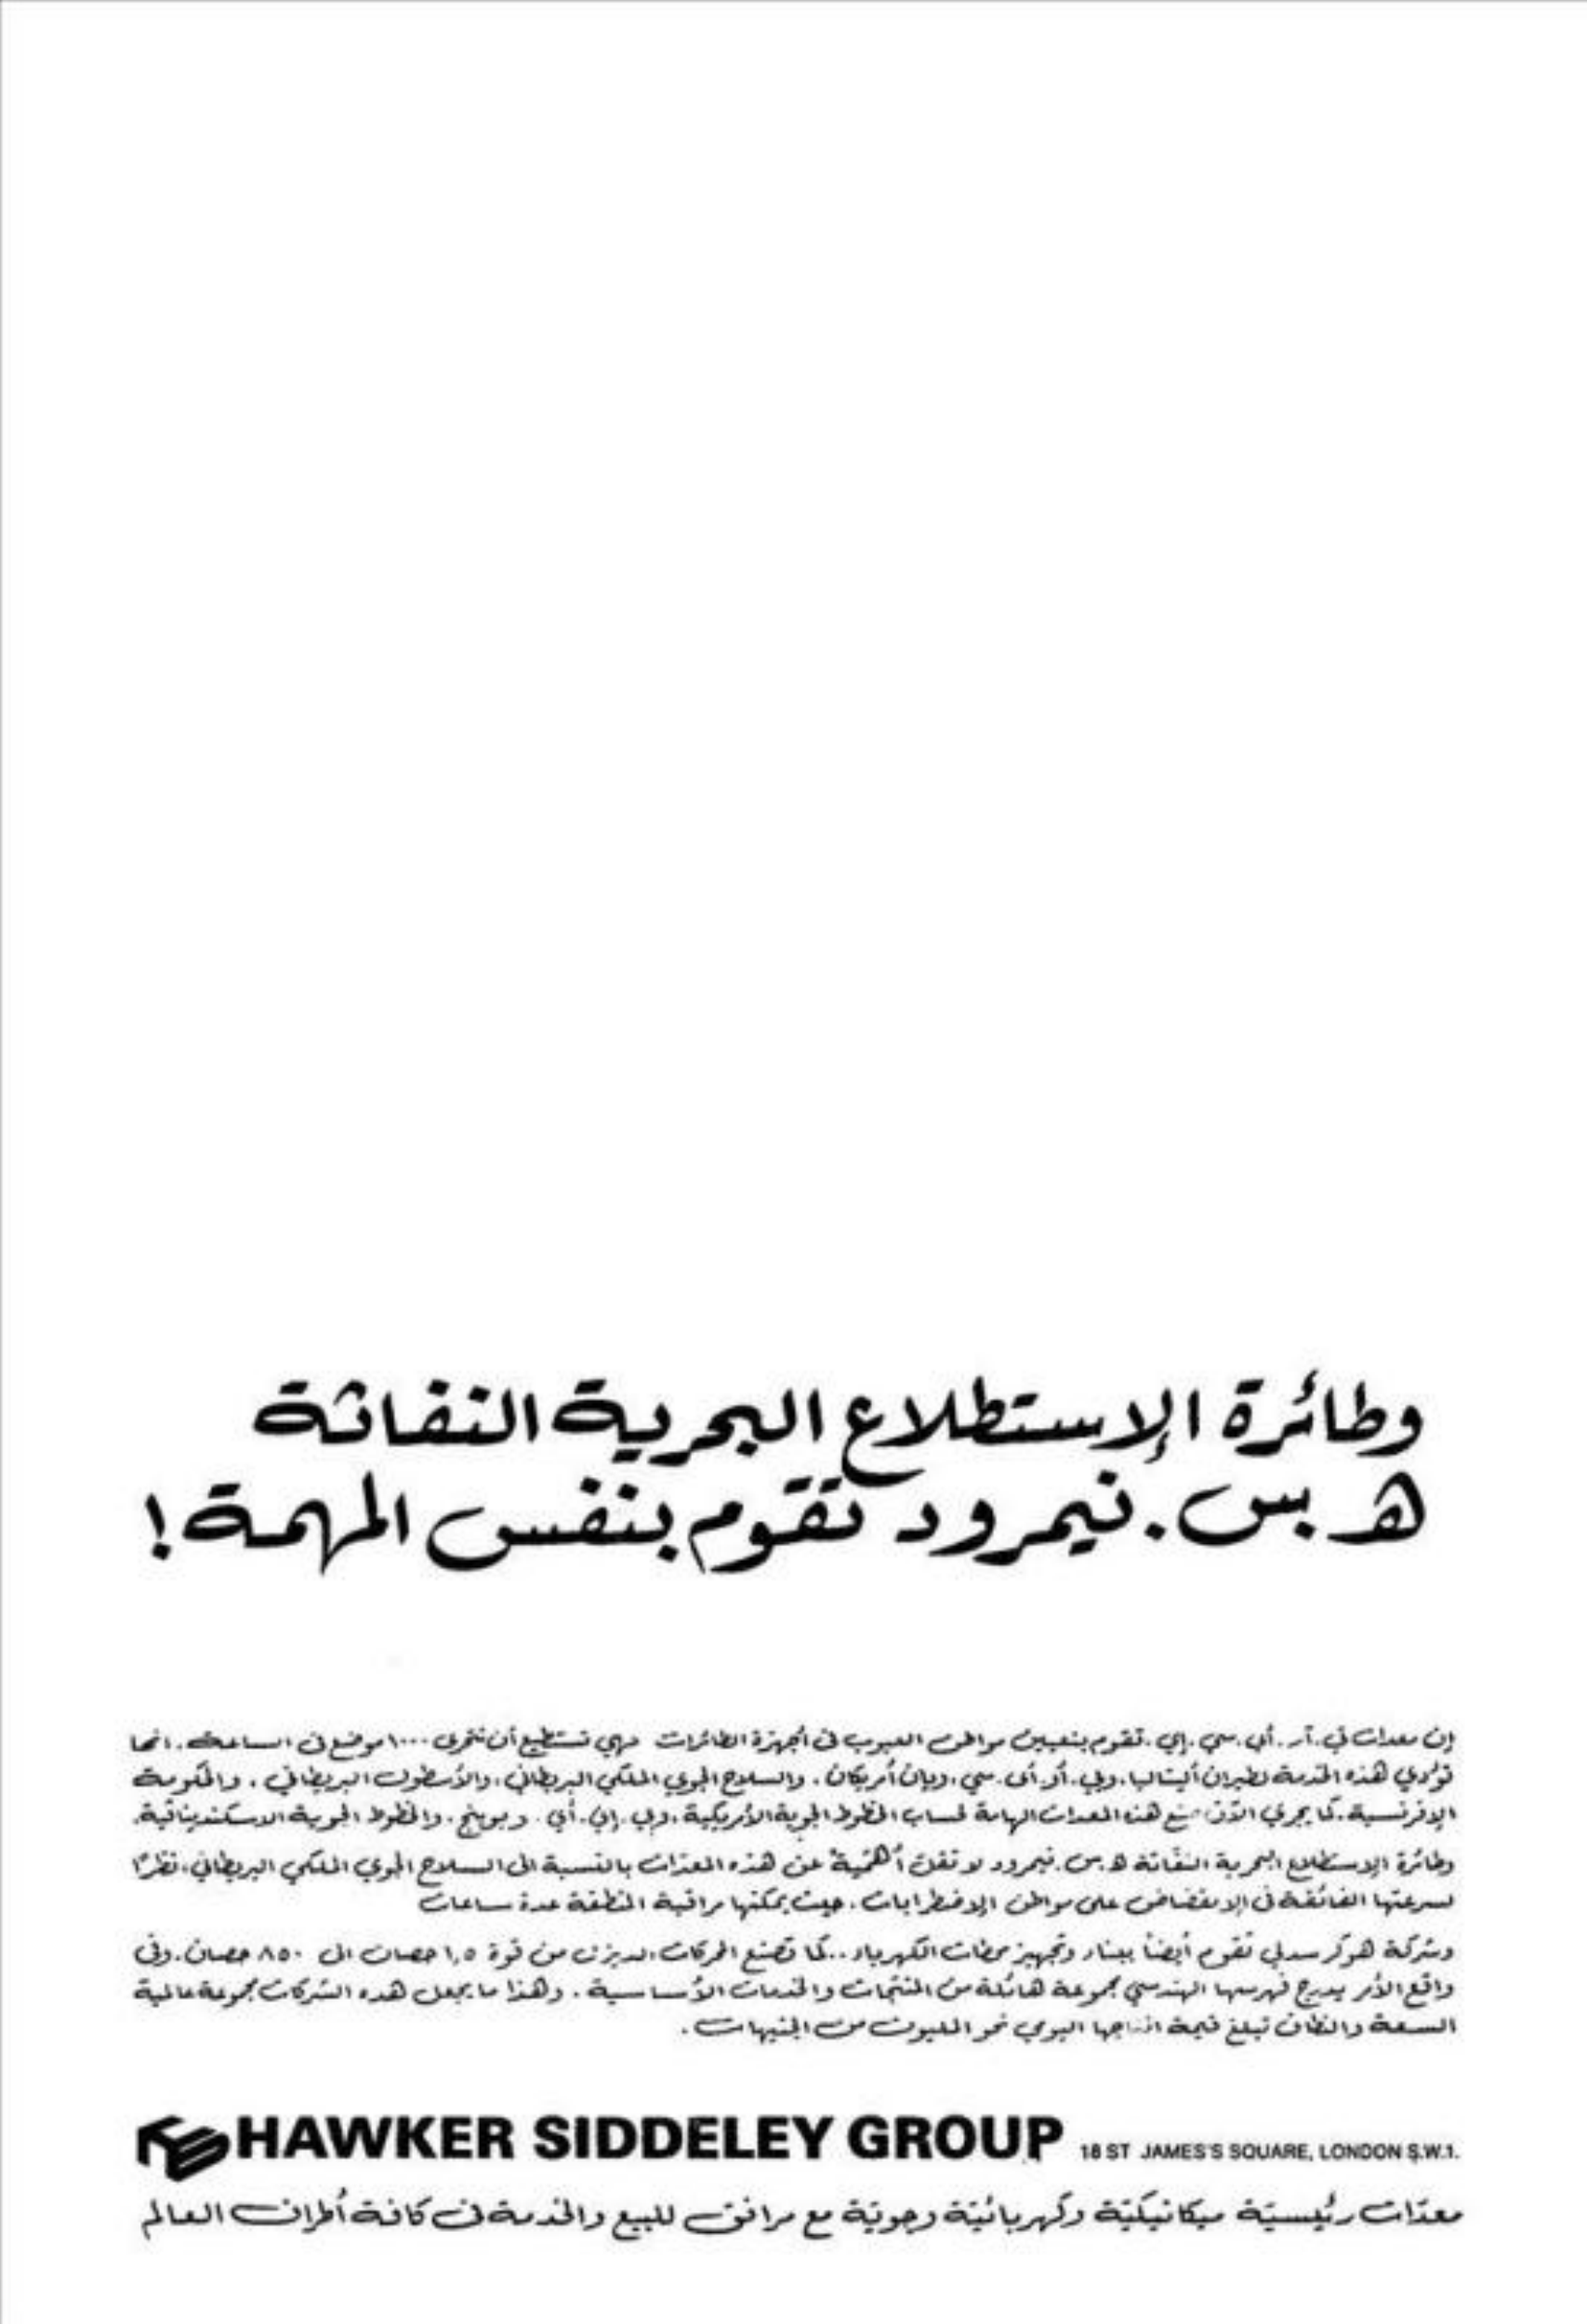 وطائرة الإستطلاع البحرية النفاثة
هـ.س. نيمرود تقوم بنفس المهمة!
إن معدات تي. آر. أي. سي. إي. تقوم بتعيين مواطن العيوب في أجهزة الطائرات وهي تستطيع أن تتحرى ١٠٠٠ موضع في الساعة. انها
تؤدي هذه الخدمة لطيران أليتاليا، وبي. أو. أى. سي، وبان أمريكان، والسلاح الجوي الملكي البريطاني، والأسطول البريطاني، والحكومة
الإفرنسية. كما يجري الآن صنع هذه المعدات الهامة لحساب الخطوط الجوية الأمريكية، وبي. إي. أي. وبوينج، والخطوط الجوية الاسكندينافية.
وطائرة الإستطلاع البحرية النفاثة هـ.س. نيمرود لا تقل أهميّة عن هذه المعدّات بالنسبة الى السلاح الجوي الملكي البريطاني، نظرًا
لسرعتها الفائقة في الإنقضاض على مواطن الإضطرابات، حيث يمكنها مراقبة المنطقة عدة ساعات
وشركة هوكر سدلي تقوم أيضاً ببناء وتجهيز محطات الكهرباء.. كما تصنع المحركات الديزل من قوة ١,٥ حصان الى ٨٥٠ حصان. وفي
واقع الأمر يدرج فهرسها الهندسي مجموعة هائلة من المنتجات والخدمات الأساسية. وهذا ما يجعل هذه الشركات مجموعة عالمية
السعة والنطاق تبلغ قيمة انتاجها اليومي نحو المليون من الجنيهات.
HAWKER SIDDELEY GROUP 18 ST JAMES'S SQUARE, LONDON S.W.1.
معدّات رئيسيّة ميكانيكيّة وكهربائيّة وجويّة مع مرافق للبيع والخدمة في كافة أطراف العالم